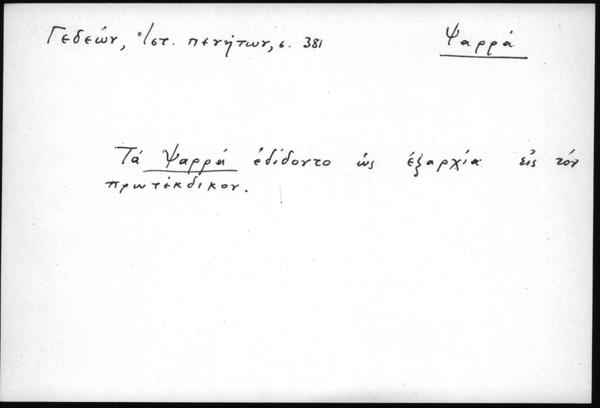 Γεδεών, Ἱστ. πενήτων, σ. 381
Ψαρρά
Τά Ψαρρά ἐδίδοντο ὡς ἐξαρχία εἰς τόν
πρωτέκδικον.